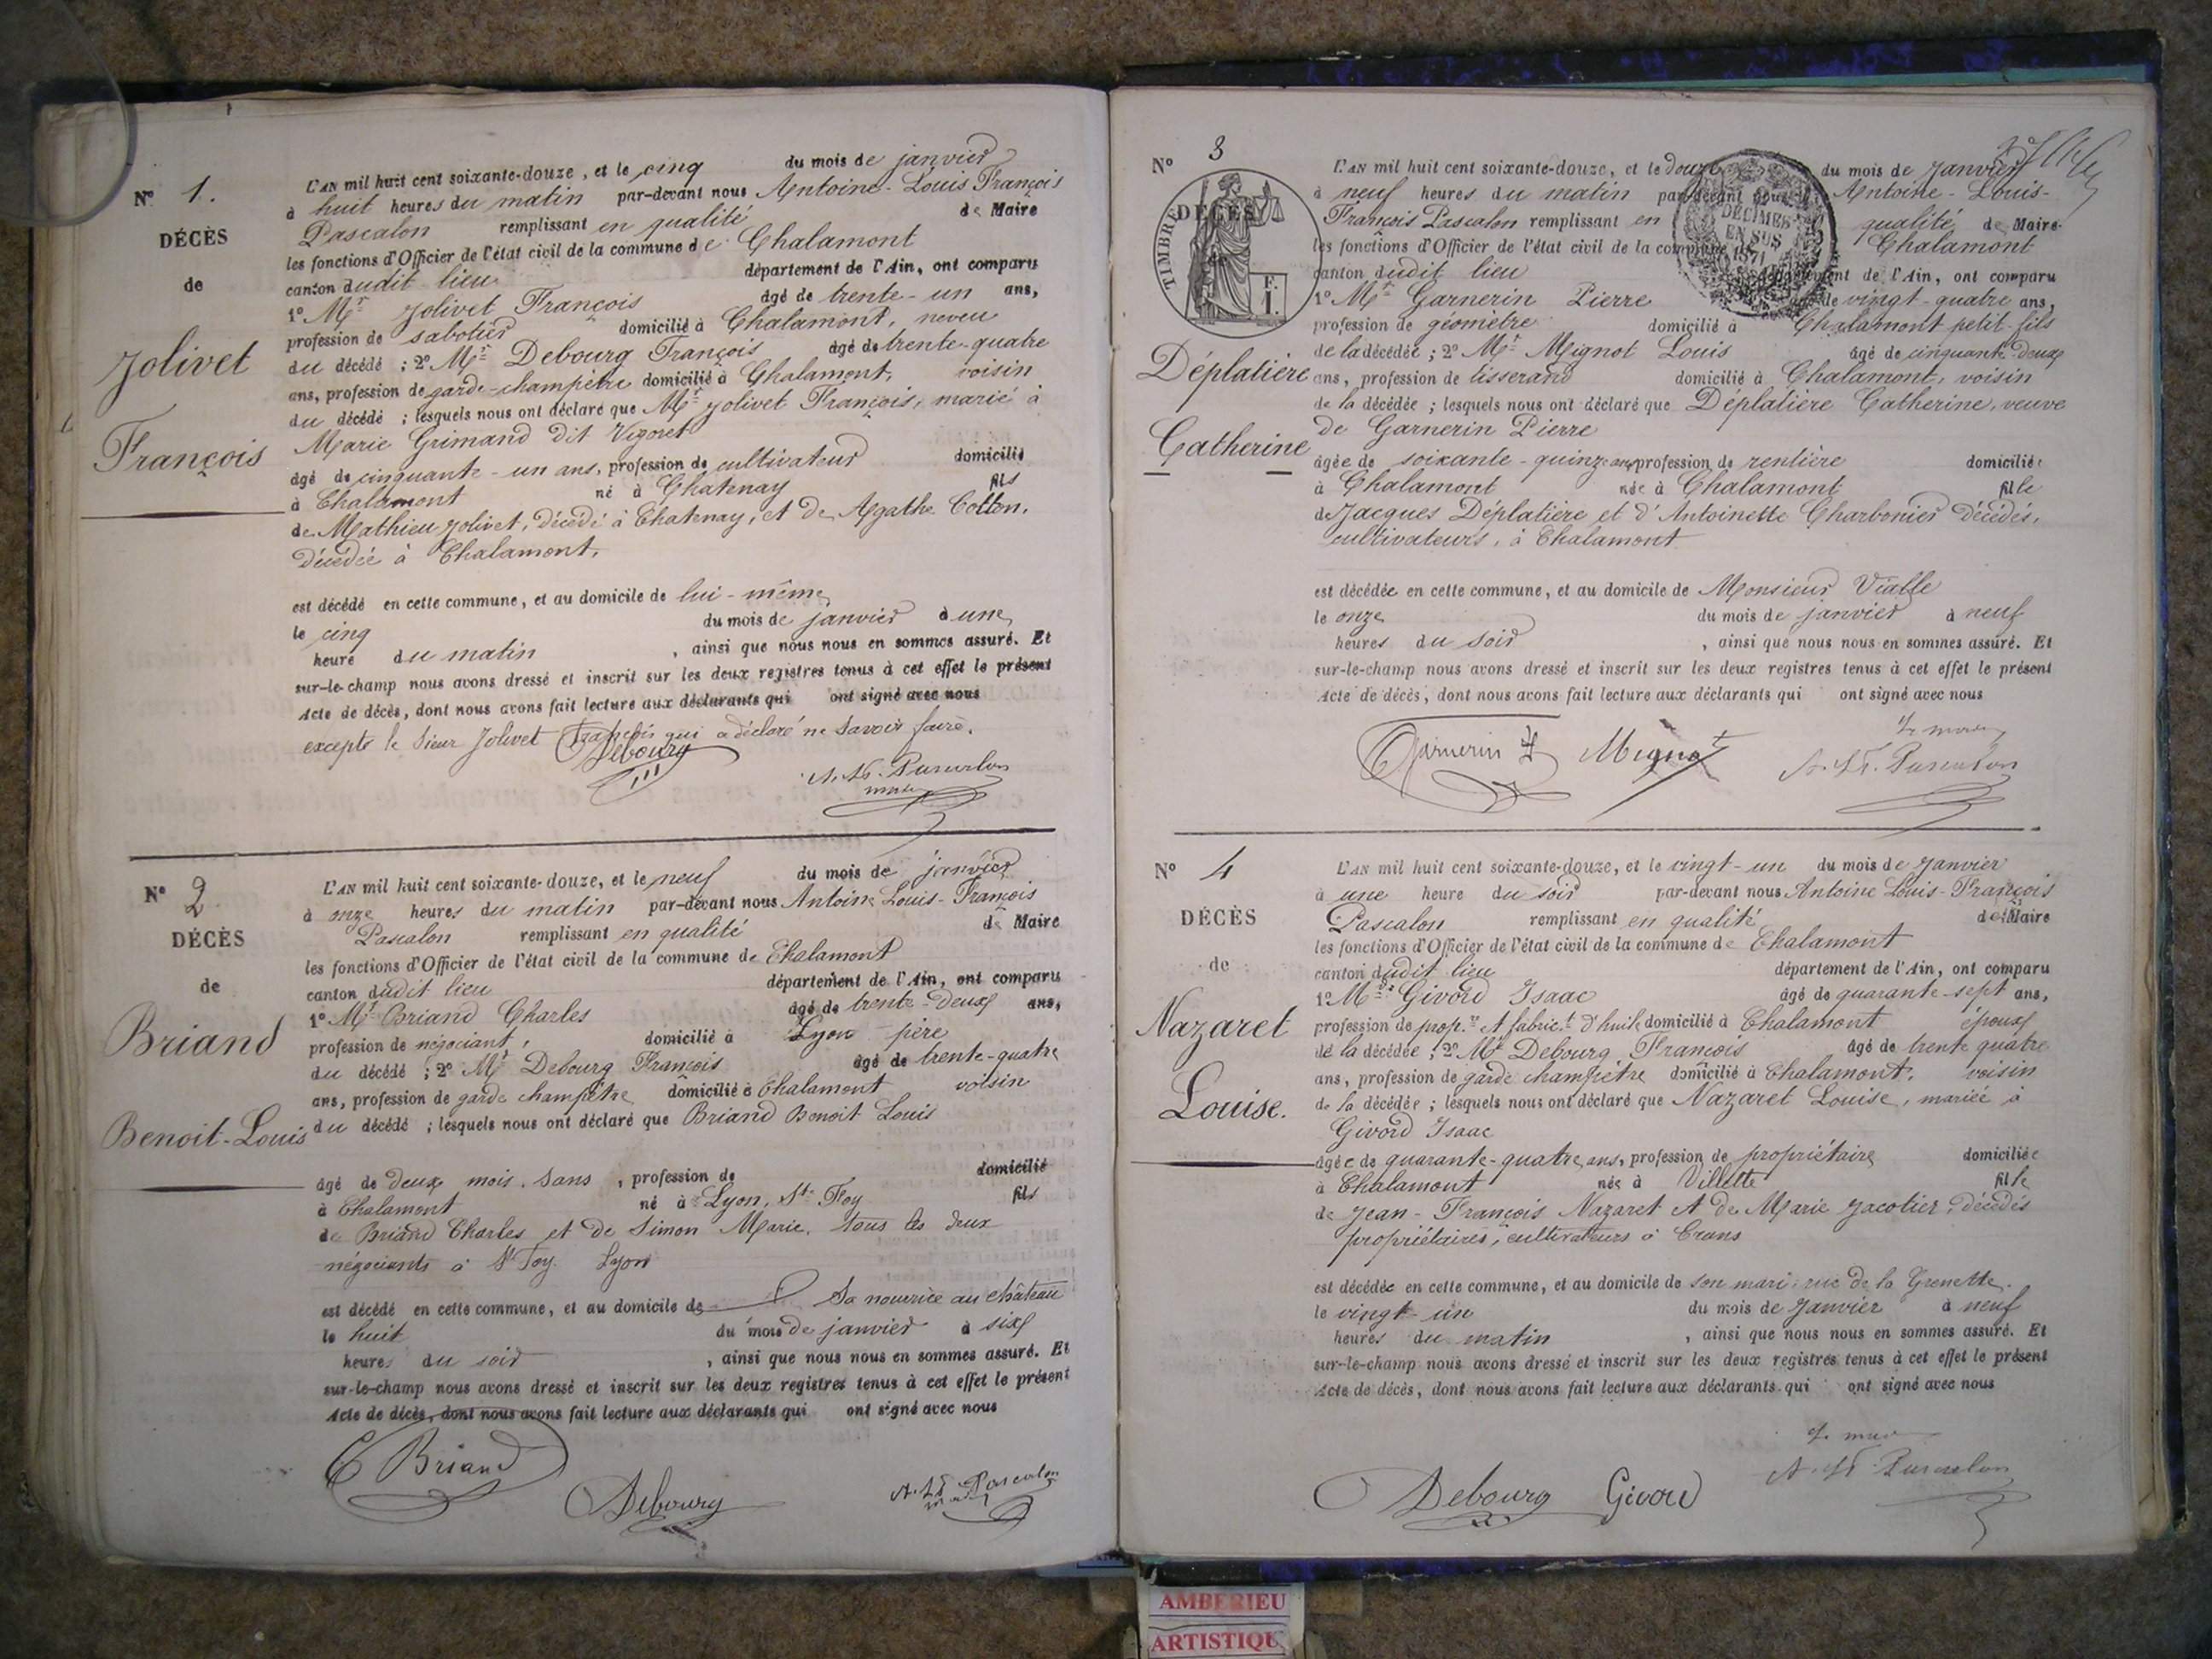 N° 1.
DÉCÈS
de
Jolivet
François
L'AN mil huit cent soixante-douze, et le cinq du mois de janvier
à huit heures du matin par-devant nous Antoine-Louis François
Pascalon remplissant en qualité de Maire
les fonctions d'Officier de l'état civil de la commune de Chalamont
canton dudit lieu département de l'Ain, ont comparu
1° Mr Jolivet François âgé de trente-un ans,
profession de sabotier domicilié à Chalamont, neveu
du décédé ; 2° Mr Debourg François âgé de trente-quatre
ans, profession de garde-champêtre domicilié à Chalamont, voisin
du décédé ; lesquels nous ont déclaré que Mr Jolivet François, marié à
Marie Grimand dit Vigoret
âgé de cinquante-un ans, profession de cultivateur domicilié
à Chalamont né à Chatenay fils
de Mathieu Jolivet, décédé à Chatenay, et de Agathe Cotton,
décédée à Chalamont,
est décédé en cette commune, et au domicile de lui-même
le cinq du mois de janvier à une
heure du matin , ainsi que nous nous en sommes assuré. Et
sur-le-champ nous avons dressé et inscrit sur les deux registres tenus à cet effet le présent
Acte de décès, dont nous avons fait lecture aux déclarants qui ont signé avec nous
excepté le Sieur Jolivet François qui a déclaré ne savoir faire.
Debourg
A. Ls. Pascalon
maire
N° 2
DÉCÈS
de
Briand
Benoit-Louis
L'AN mil huit cent soixante-douze, et le neuf du mois de janvier
à onze heures du matin par-devant nous Antoine Louis-François
Pascalon remplissant en qualité de Maire
les fonctions d'Officier de l'état civil de la commune de Chalamont
canton dudit lieu département de l'Ain, ont comparu
1° Mr Briand Charles âgé de trente-deux ans,
profession de négociant, domicilié à Lyon père
du décédé ; 2° Mr Debourg François âgé de trente-quatre
ans, profession de garde champêtre domicilié à Chalamont voisin
du décédé ; lesquels nous ont déclaré que Briand Benoit Louis
âgé de deux mois. sans , profession de domicilié
à Chalamont né à Lyon, St Foy fils
de Briand Charles et de Simon Marie, tous les deux
négociants à St Foy Lyon
est décédé en cette commune, et au domicile de Sa nourrice au château
le huit du mois de janvier à six
heures du soir , ainsi que nous nous en sommes assuré. Et
sur-le-champ nous avons dressé et inscrit sur les deux registres tenus à cet effet le présent
Acte de décès, dont nous avons fait lecture aux déclarants qui ont signé avec nous
C Briand
Debourg
A. Ls Pascalon
maire
N° 3
DÉCÈS
TIMBRE
F.
1.
Déplatière
Catherine
DÉCIMES
EN SUS
1871
L'AN mil huit cent soixante-douze, et le douze du mois de Janvier
à neuf heures du matin par-devant nous Antoine-Louis-
François Pascalon remplissant en qualité de Maire
les fonctions d'Officier de l'état civil de la commune de Chalamont
canton dudit lieu département de l'Ain, ont comparu
1° Mr Garnerin Pierre âgé de vingt-quatre ans,
profession de géomètre domicilié à Chalamont petit-fils
de la décédée ; 2° Mr Mignot Louis âgé de cinquante-deux
ans, profession de tisserand domicilié à Chalamont, voisin
de la décédée ; lesquels nous ont déclaré que Déplatière Catherine, veuve
de Garnerin Pierre
âgée de soixante-quinze ans, profession de rentière domiciliée
à Chalamont née à Chalamont fille
de Jacques Déplatière et d'Antoinette Charbonier décédés,
cultivateurs, à Chalamont
est décédée en cette commune, et au domicile de Monsieur Vialle
le onze du mois de janvier à neuf
heures du soir , ainsi que nous nous en sommes assuré. Et
sur-le-champ nous avons dressé et inscrit sur les deux registres tenus à cet effet le présent
Acte de décès, dont nous avons fait lecture aux déclarants qui ont signé avec nous
Garnerin Mignot
le maire
A. Ls. Pascalon
N° 4
DÉCÈS
de
Nazaret
Louise.
L'AN mil huit cent soixante-douze, et le vingt-un du mois de Janvier
à une heure du soir par-devant nous Antoine Louis-François
Pascalon remplissant en qualité de Maire
les fonctions d'Officier de l'état civil de la commune de Chalamont
canton dudit lieu département de l'Ain, ont comparu
1° Mr Givord Isaac âgé de quarante-sept ans,
profession de prop.re et fabric.t d'huile domicilié à Chalamont époux
de la décédée ; 2° Mr Debourg François âgé de trente quatre
ans, profession de garde champêtre domicilié à Chalamont, voisin
de la décédée ; lesquels nous ont déclaré que Nazaret Louise, mariée à
Givord Isaac
âgée de quarante-quatre ans, profession de propriétaire domiciliée
à Chalamont née à Villette fille
de Jean-François Nazaret et de Marie Jacotier, décédés
propriétaires, cultivateurs à Crans
est décédée en cette commune, et au domicile de son mari rue de la Grenette.
le vingt-un du mois de Janvier à neuf
heures du matin , ainsi que nous nous en sommes assuré. Et
sur-le-champ nous avons dressé et inscrit sur les deux registres tenus à cet effet le présent
Acte de décès, dont nous avons fait lecture aux déclarants qui ont signé avec nous
le maire
A. Ls. Pascalon
Debourg Givord
AMBERIEU
ARTISTIQU